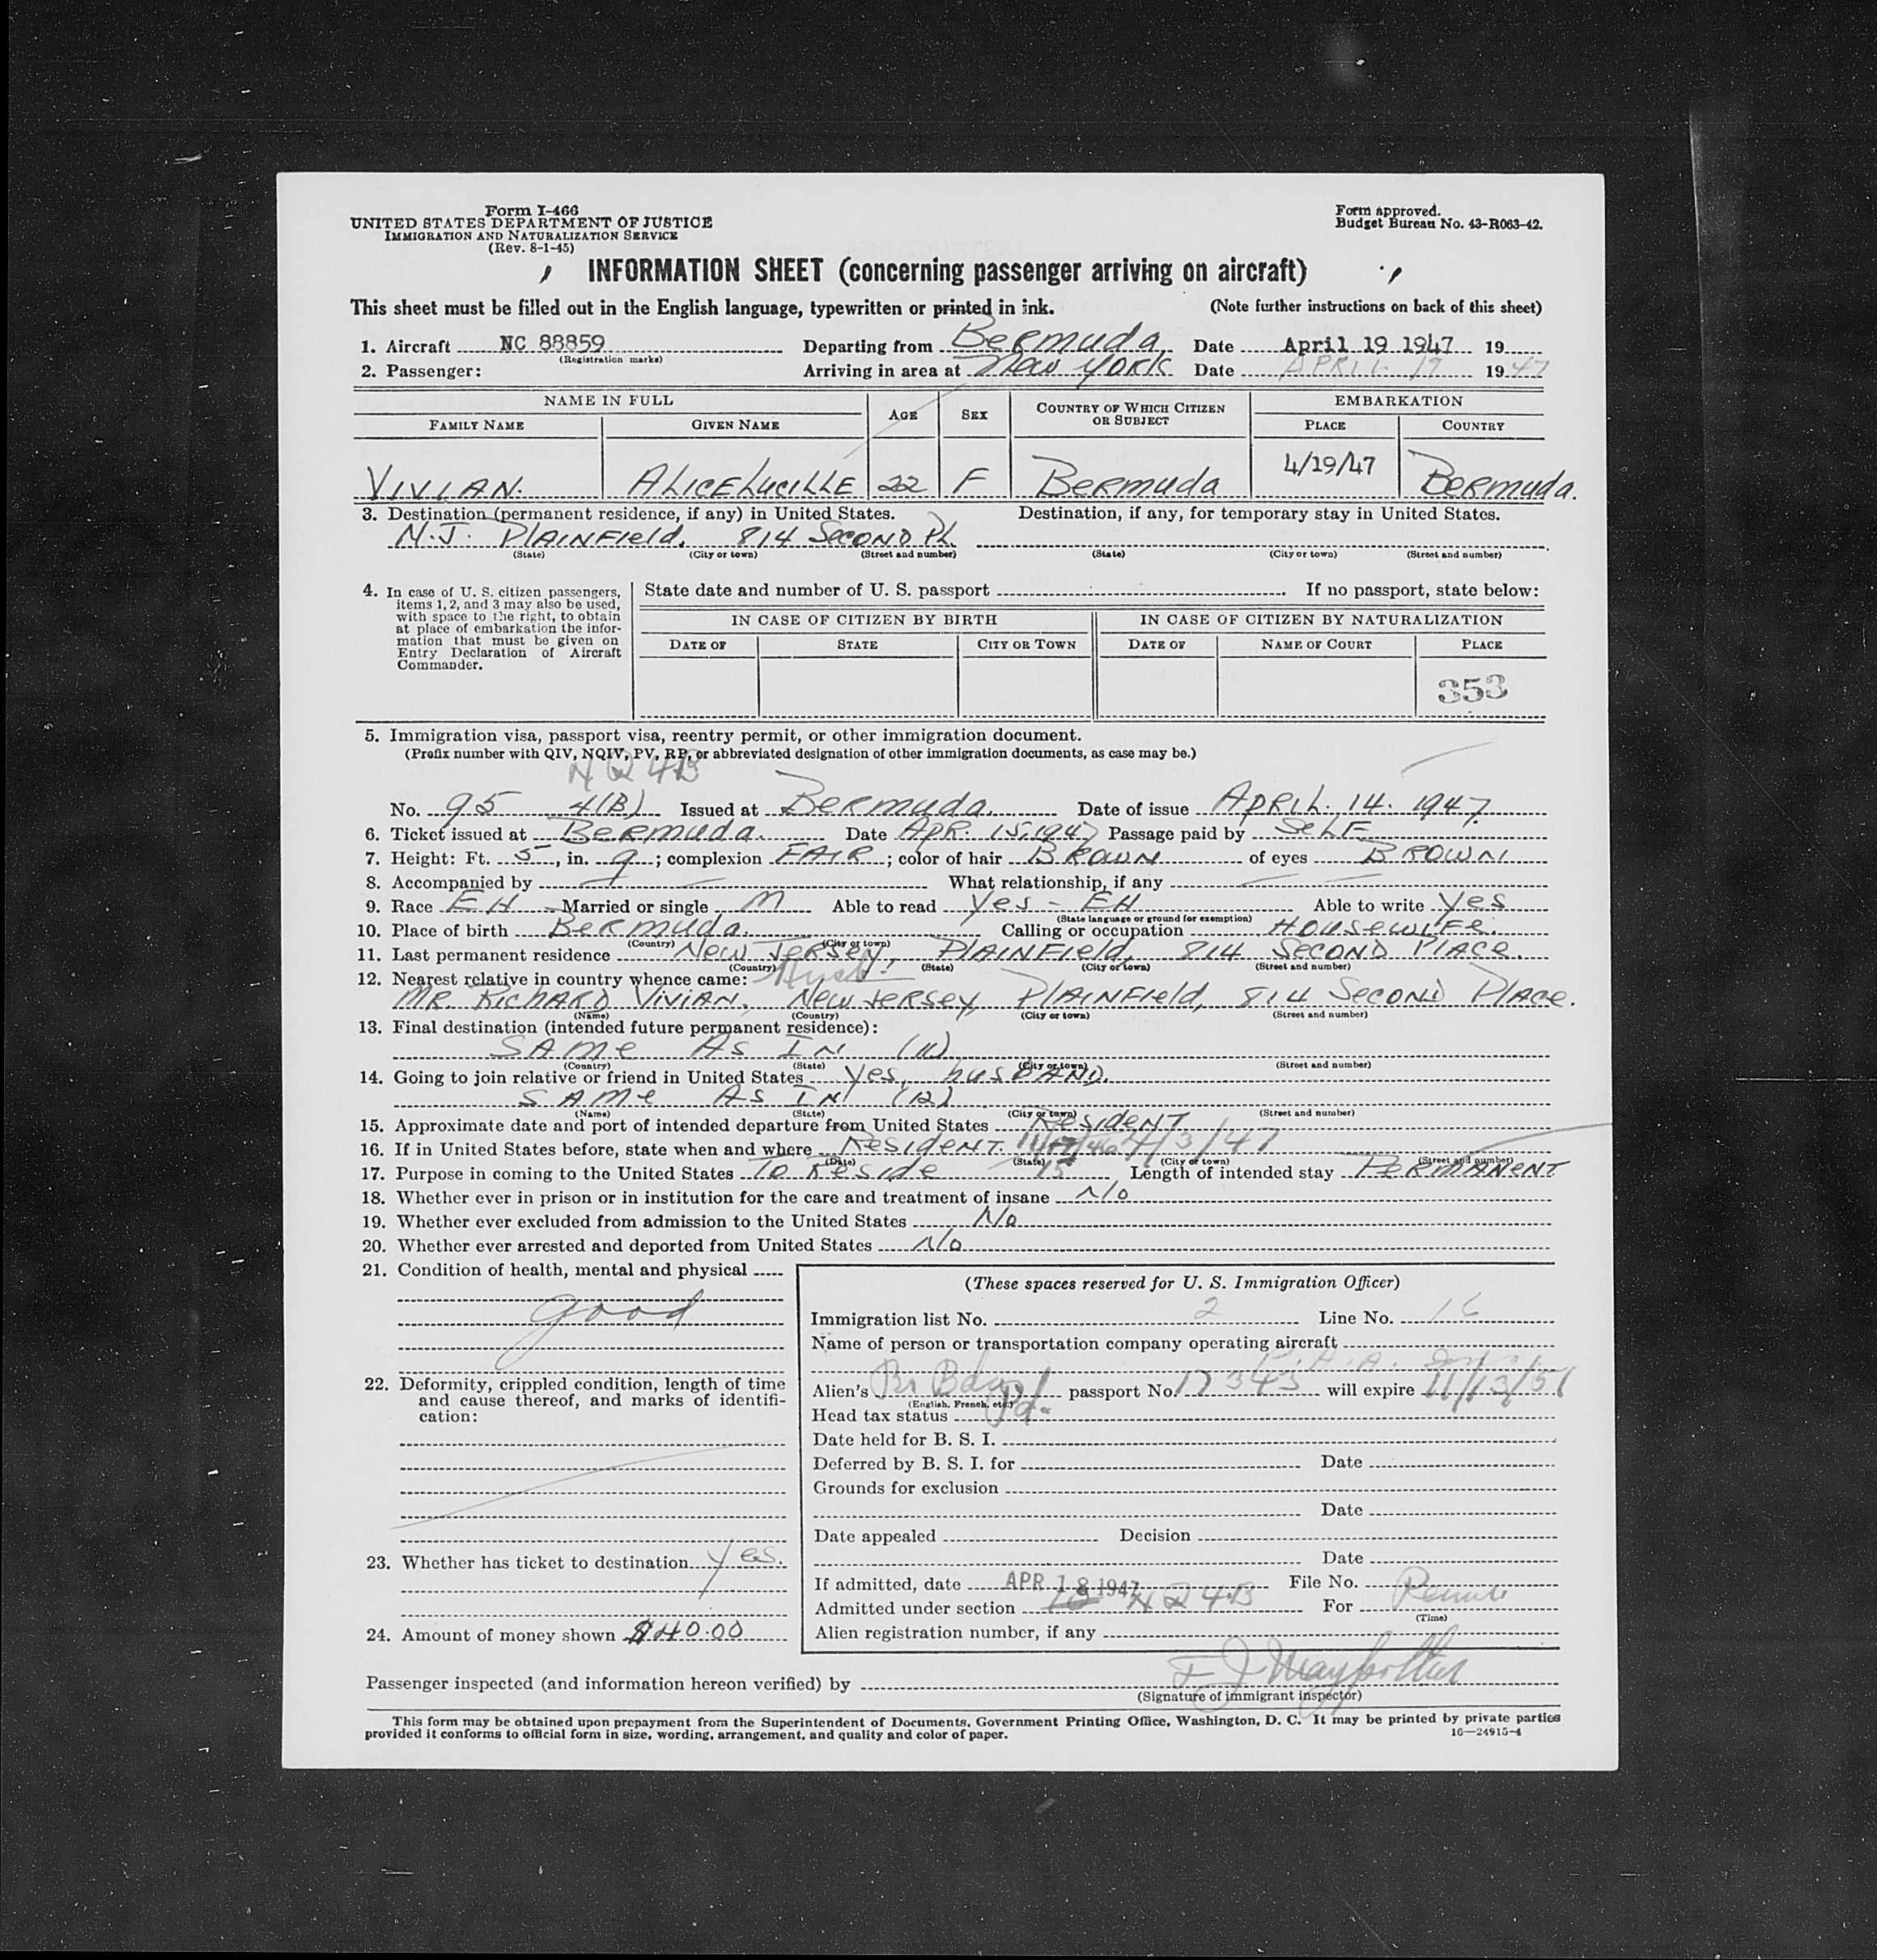 Form I-466
UNITED STATES DEPARTMENT OF JUSTICE
IMMIGRATION AND NATURALIZATION SERVICE
(Rev. 8-1-45)
Form approved.
Budget Bureau No. 43-R063-42.
INFORMATION SHEET (concerning passenger arriving on aircraft)
This sheet must be filled out in the English language, typewritten or printed in ink. (Note further instructions on back of this sheet)
1. Aircraft NC 88859 Departing from Bermuda Date April 19 1947 19
(Registration marks)
2. Passenger: Arriving in area at New York Date APRIL 19 1947
NAME IN FULL AGE SEX COUNTRY OF WHICH CITIZEN OR SUBJECT EMBARKATION
FAMILY NAME GIVEN NAME PLACE COUNTRY
VIVIAN. ALICE LUCILLE 22 F Bermuda 4/19/47 Bermuda.
3. Destination (permanent residence, if any) in United States. Destination, if any, for temporary stay in United States.
N.J. Plainfield. 814 Second Pl.
(State) (City or town) (Street and number) (State) (City or town) (Street and number)
4. In case of U. S. citizen passengers, items 1, 2, and 3 may also be used, with space to the right, to obtain at place of embarkation the information that must be given on Entry Declaration of Aircraft Commander.
State date and number of U. S. passport If no passport, state below:
IN CASE OF CITIZEN BY BIRTH IN CASE OF CITIZEN BY NATURALIZATION
DATE OF STATE CITY OR TOWN DATE OF NAME OF COURT PLACE
353
5. Immigration visa, passport visa, reentry permit, or other immigration document.
(Prefix number with QIV, NQIV, PV, RP, or abbreviated designation of other immigration documents, as case may be.)
NQ 4B
No. 95 4(B) Issued at Bermuda. Date of issue April. 14. 1947
6. Ticket issued at Bermuda. Date Apr. 15, 1947 Passage paid by Self
7. Height: Ft. 5, in. 9; complexion FAIR; color of hair BROWN of eyes BROWN
8. Accompanied by — What relationship, if any —
9. Race EH Married or single M Able to read Yes - EH Able to write Yes
(State language or ground for exemption)
10. Place of birth Bermuda. Calling or occupation Housewife.
(Country) (City or town)
11. Last permanent residence New Jersey, Plainfield, 814 Second Place.
(Country) (State) (City or town) (Street and number)
12. Nearest relative in country whence came: Husb
MR. Richard Vivian, New Jersey, Plainfield, 814 Second Place.
(Name) (Country) (City or town) (Street and number)
13. Final destination (intended future permanent residence):
Same As In (11)
(Country) (State) (City or town) (Street and number)
14. Going to join relative or friend in United States Yes, husband.
Same As In (12)
(Name) (State) (City or town) (Street and number)
15. Approximate date and port of intended departure from United States Resident
16. If in United States before, state when and where Resident. 4/3/47
(Date) (State) (City or town) (Street and number)
17. Purpose in coming to the United States To Reside Length of intended stay Permanent
18. Whether ever in prison or in institution for the care and treatment of insane No
19. Whether ever excluded from admission to the United States No
20. Whether ever arrested and deported from United States No
21. Condition of health, mental and physical
good
22. Deformity, crippled condition, length of time and cause thereof, and marks of identification:
23. Whether has ticket to destination yes.
24. Amount of money shown $40.00
(These spaces reserved for U. S. Immigration Officer)
Immigration list No. 2 Line No. 16
Name of person or transportation company operating aircraft
P.A.A.
Alien's Br passport No. 17343 will expire 11/13/51
(English, French, etc.)
Head tax status Pd.
Date held for B. S. I.
Deferred by B. S. I. for Date
Grounds for exclusion
Date
Date appealed Decision
Date
If admitted, date APR 18 1947 File No.
Admitted under section NQ 4B For
(Time)
Alien registration number, if any
Passenger inspected (and information hereon verified) by
(Signature of immigrant inspector)
This form may be obtained upon prepayment from the Superintendent of Documents, Government Printing Office, Washington, D. C. It may be printed by private parties
provided it conforms to official form in size, wording, arrangement, and quality and color of paper. 16—24915-4